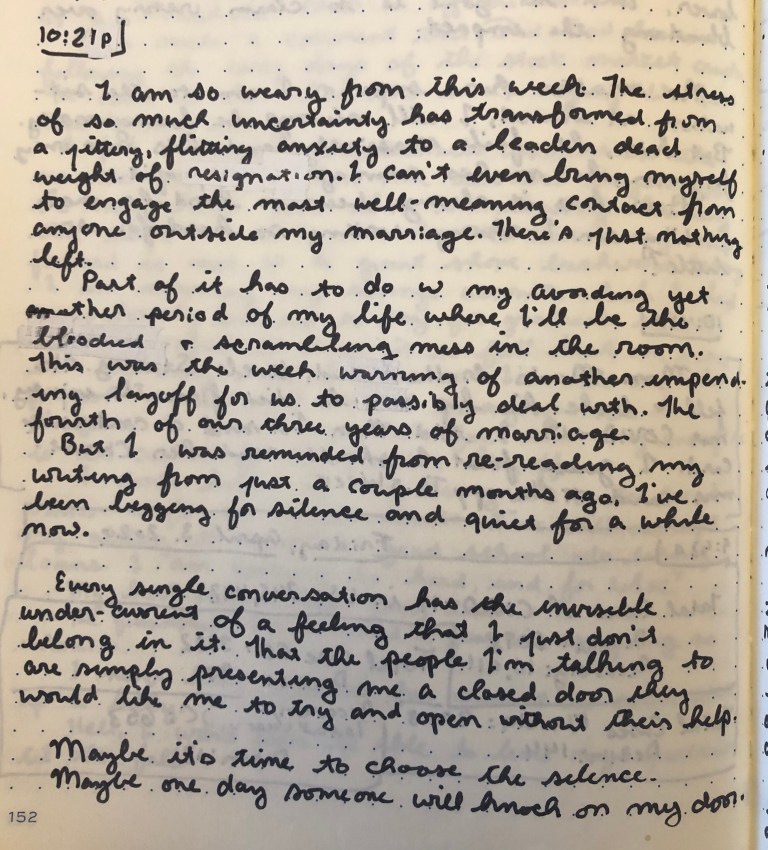 10:21p
I am so weary from this week. The stress
of so much uncertainty has transformed from
a jittery, flitting anxiety to a leaden dead
weight of resignation. I can't even bring myself
to engage the most well-meaning contact from
anyone outside my marriage. There's just nothing
left.
Part of it has to do w my avoiding yet
another period of my life where I'll be the
bloodied & scrambling mess in the room.
This was the week warning of another impend-
ing layoff for us to possibly deal with. The
fourth of our three years of marriage.
But I was reminded from re-reading my
writing from just a couple months ago, I've
been begging for silence and quiet for a while
now.
Every single conversation has the invisible
under-current of a feeling that I just don't
belong in it. That the people I'm talking to
are simply presenting me a closed door they
would like me to try and open without their help.
Maybe it's time to choose the silence.
Maybe one day someone will knock on my door.
152